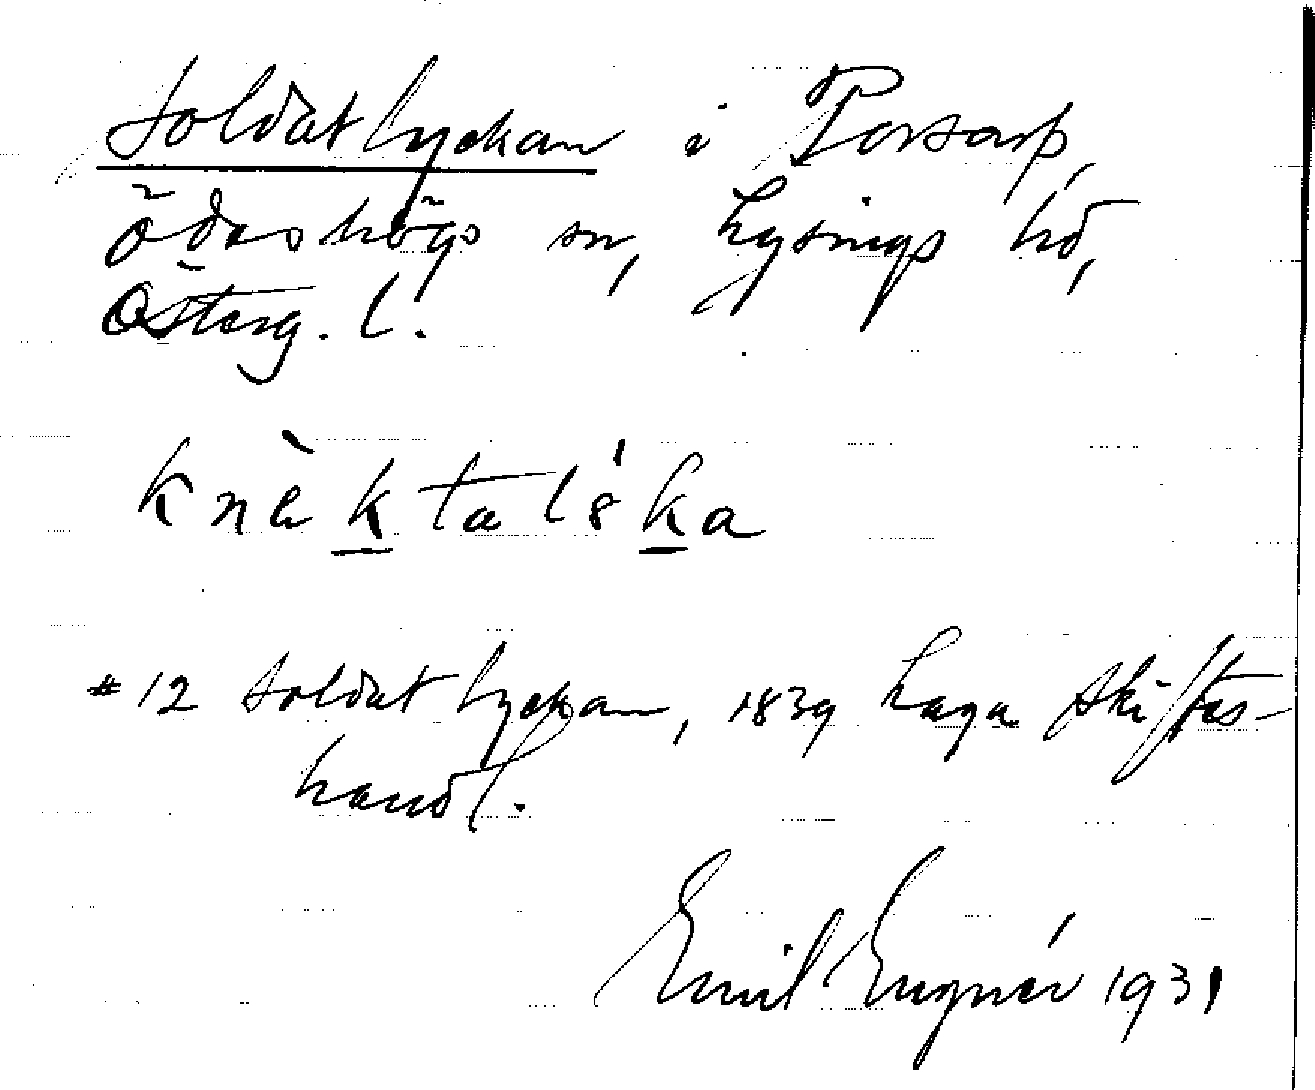 Soldatlyckan i Porsarp,
Ödeshögs sn, Lysings hd,
Österg. l.
knɛ̀ktalɵ́ka
*12 Soldatlyckan, 1839 Laga skiftes-
handl.
Emil Engnér 1931